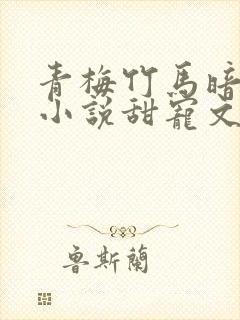 青梅竹馬暗
小説甜寵文
魯斯蘭